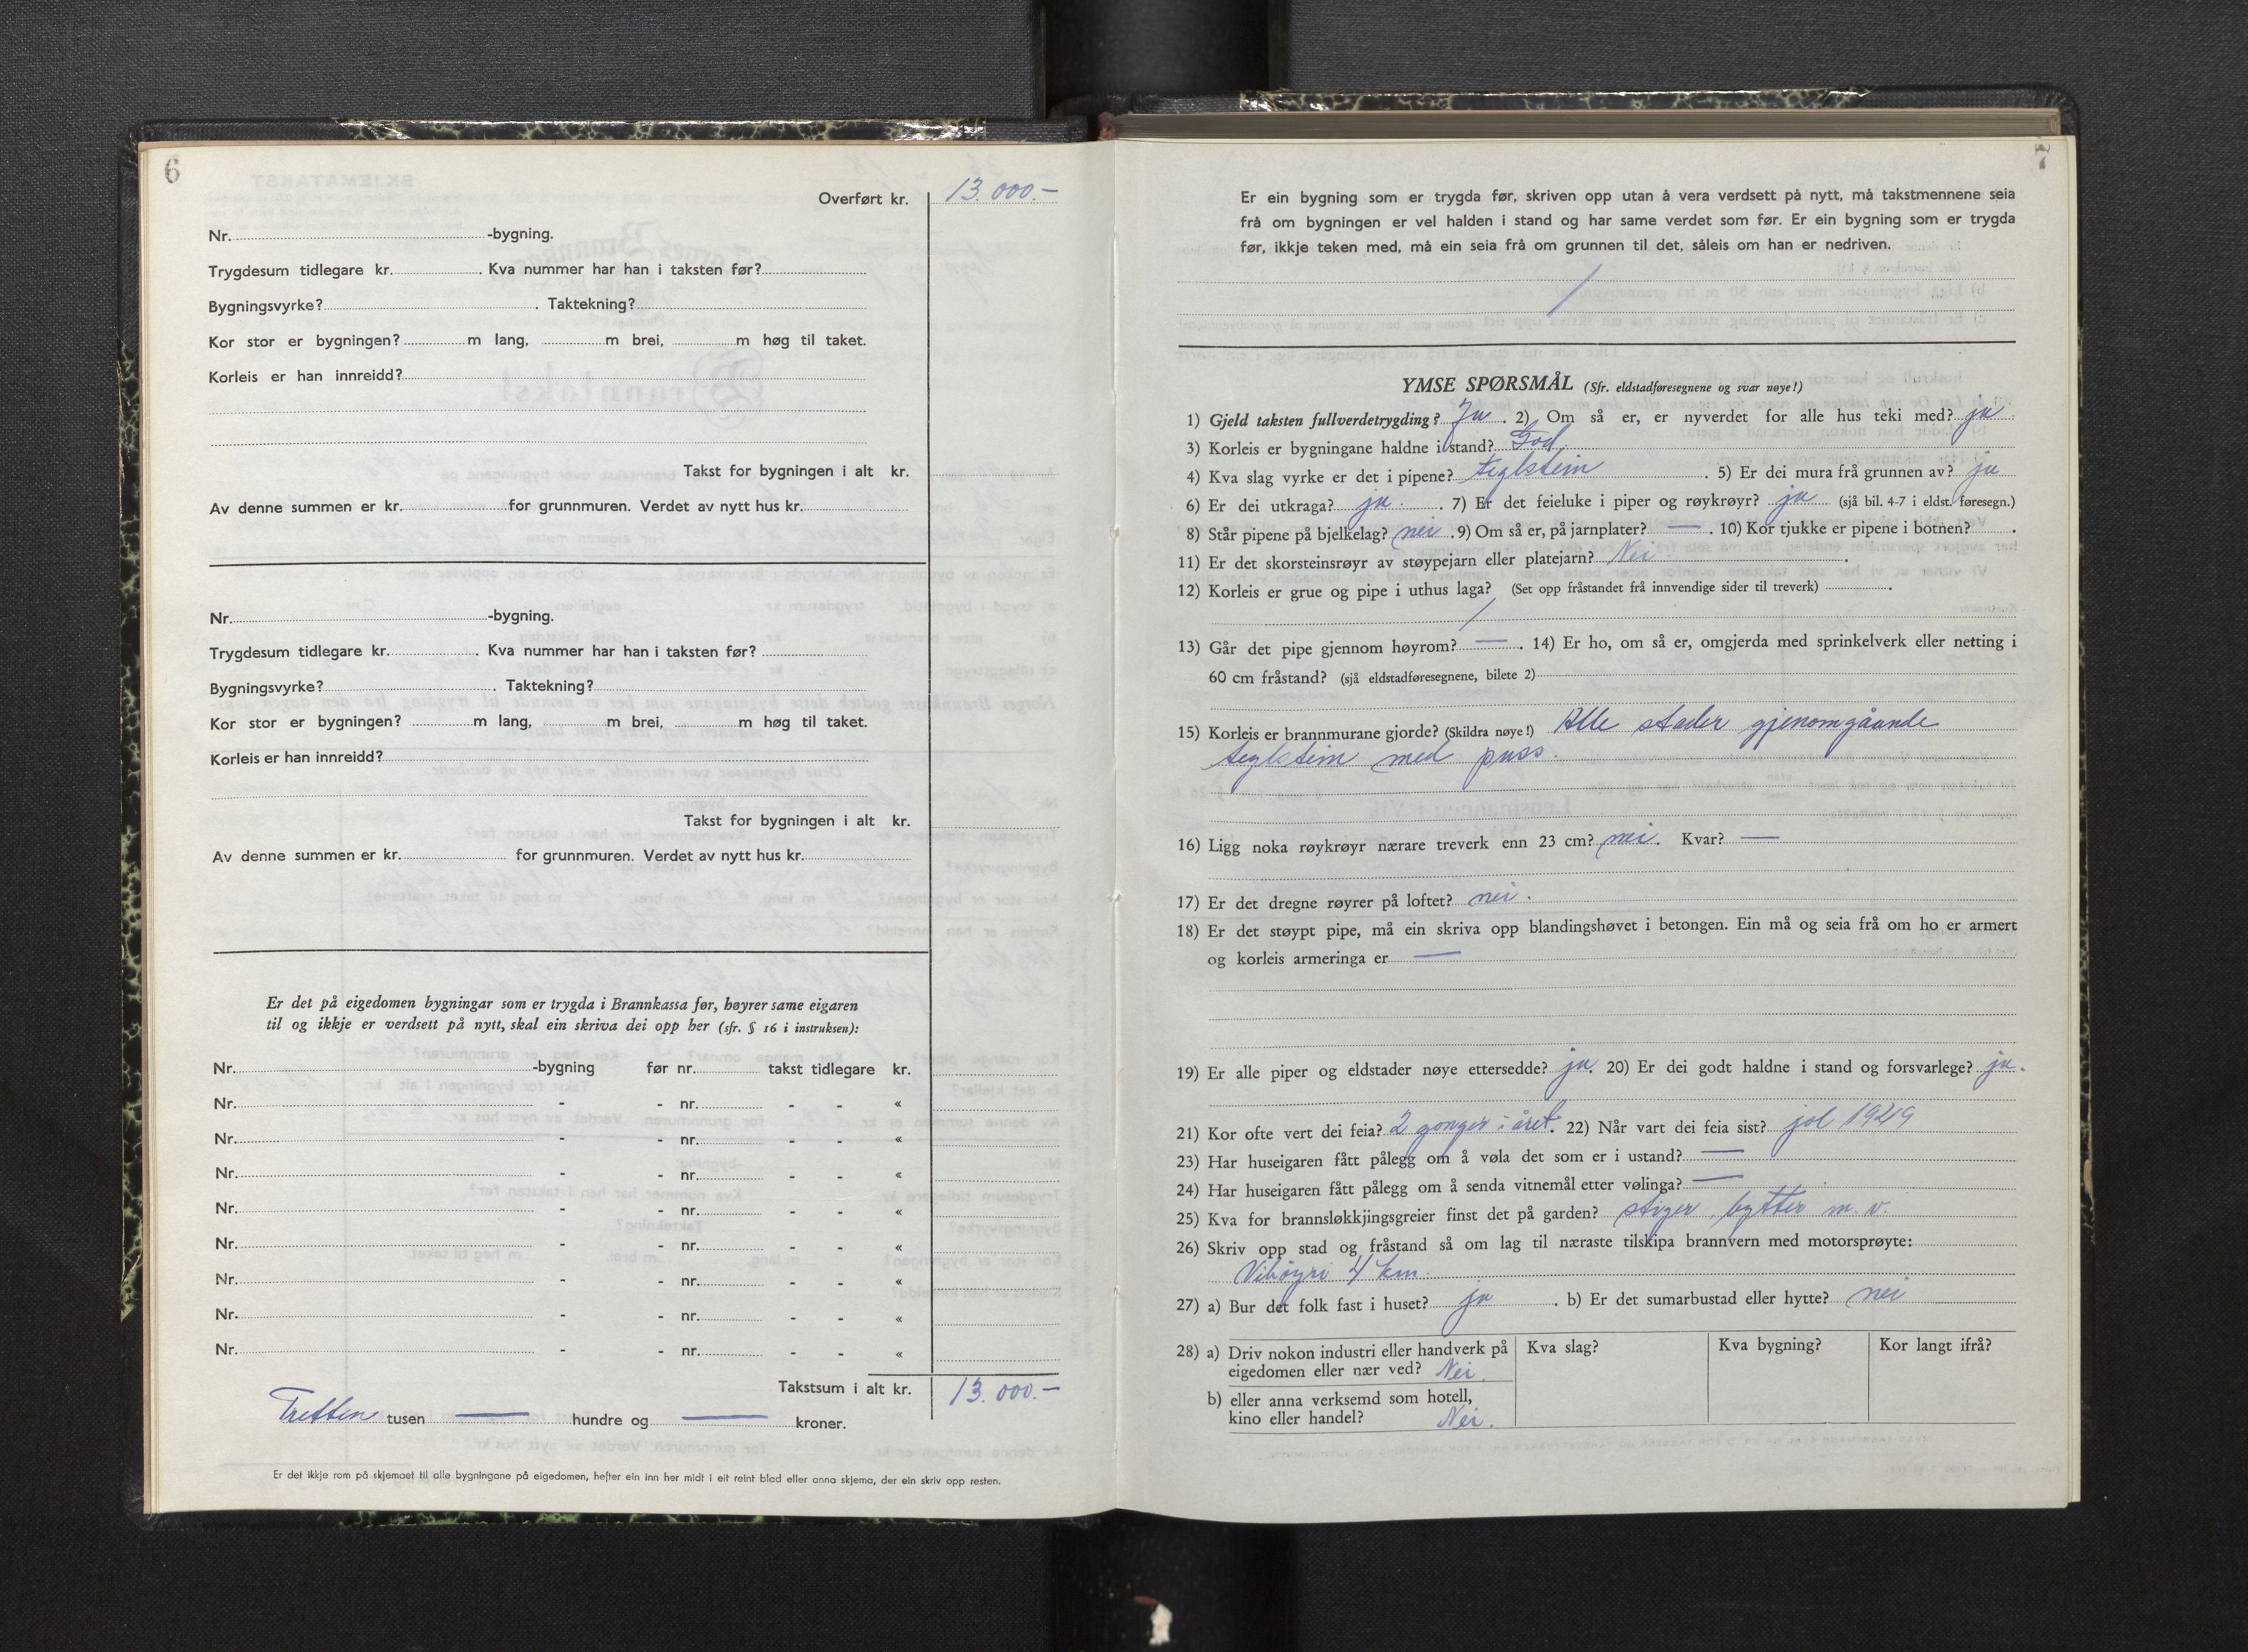 6
Overført kr. 13.000.-
Nr. -bygning.
Trygdesum tidlegare kr. . Kva nummer har han i taksten før?
Bygningsvyrke? . Taktekning?
Kor stor er bygningen? m lang, m brei, m høg til taket.
Korleis er han innreidd?
Takst for bygningen i alt kr.
Av denne summen er kr. for grunnmuren. Verdet av nytt hus kr.
Nr. -bygning.
Trygdesum tidlegare kr. . Kva nummer har han i taksten før?
Bygningsvyrke? . Taktekning?
Kor stor er bygningen? m lang, m brei, m høg til taket.
Korleis er han innreidd?
Takst for bygningen i alt kr.
Av denne summen er kr. for grunnmuren. Verdet av nytt hus kr.
Er det på eigedomen bygningar som er trygda i Brannkassa før, høyrer same eigaren
til og ikkje er verdsett på nytt, skal ein skriva dei opp her (sfr. § 16 i instruksen):
Nr. -bygning før nr. takst tidlegare kr.
Nr. - - nr. - - «
Nr. - - nr. - - «
Nr. - - nr. - - «
Nr. - - nr. - - «
Nr. - - nr. - - «
Nr. - - nr. - - «
Nr. - - nr. - - «
Nr. - - nr. - - «
Takstsum i alt kr. 13.000.-
Tretten tusen — hundre og — kroner.
Er det ikkje rom på skjemaet til alle bygningane på eigedomen, hefter ein inn her midt i eit reint blad eller anna skjema, der ein skriv opp resten.
7
Er ein bygning som er trygda før, skriven opp utan å vera verdsett på nytt, må takstmennene seia
frå om bygningen er vel halden i stand og har same verdet som før. Er ein bygning som er trygda
før, ikkje teken med, må ein seia frå om grunnen til det, såleis om han er nedriven.
/
YMSE SPØRSMÅL (Sfr. eldstadføresegnene og svar nøye!)
1) Gjeld taksten fullverdetrygding? Ja . 2) Om så er, er nyverdet for alle hus teki med? ja
3) Korleis er bygningane haldne i stand? God
4) Kva slag vyrke er det i pipene? teglstein . 5) Er dei mura frå grunnen av? ja
6) Er dei utkraga? ja . 7) Er det feieluke i piper og røykrøyr? ja (sjå bil. 4-7 i eldst. føresegn.)
8) Står pipene på bjelkelag? nei . 9) Om så er, på jarnplater? — . 10) Kor tjukke er pipene i botnen? .
11) Er det skorsteinsrøyr av støypejarn eller platejarn? Nei .
12) Korleis er grue og pipe i uthus laga? (Set opp fråstandet frå innvendige sider til treverk) .
/
13) Går det pipe gjennom høyrom? — . 14) Er ho, om så er, omgjerda med sprinkelverk eller netting i
60 cm fråstand? (sjå eldstadføresegnene, bilete 2)
15) Korleis er brannmurane gjorde? (Skildra nøye!) Alle stader gjenomgåande
teglstein med puss.
16) Ligg noka røykrøyr nærare treverk enn 23 cm? nei. Kvar? —
17) Er det dregne røyrer på loftet? nei.
18) Er det støypt pipe, må ein skriva opp blandingshøvet i betongen. Ein må og seia frå om ho er armert
og korleis armeringa er —
19) Er alle piper og eldstader nøye ettersedde? ja. 20) Er dei godt haldne i stand og forsvarlege? ja.
21) Kor ofte vert dei feia? 2 gonger i året. 22) Når vart dei feia sist? jol 1949
23) Har huseigaren fått pålegg om å vøla det som er i ustand? —
24) Har huseigaren fått pålegg om å senda vitnemål etter vølinga? —
25) Kva for brannsløkkjingsgreier finst det på garden? stiger, bytter m.v.
26) Skriv opp stad og fråstand så om lag til næraste tilskipa brannvern med motorsprøyte:
Vikøyri 4 km.
27) a) Bur det folk fast i huset? ja . b) Er det sumarbustad eller hytte? nei
28) a) Driv nokon industri eller handverk på Kva slag? Kva bygning? Kor langt ifrå?
eigedomen eller nær ved? Nei.
b) eller anna verksemd som hotell,
kino eller handel? Nei.